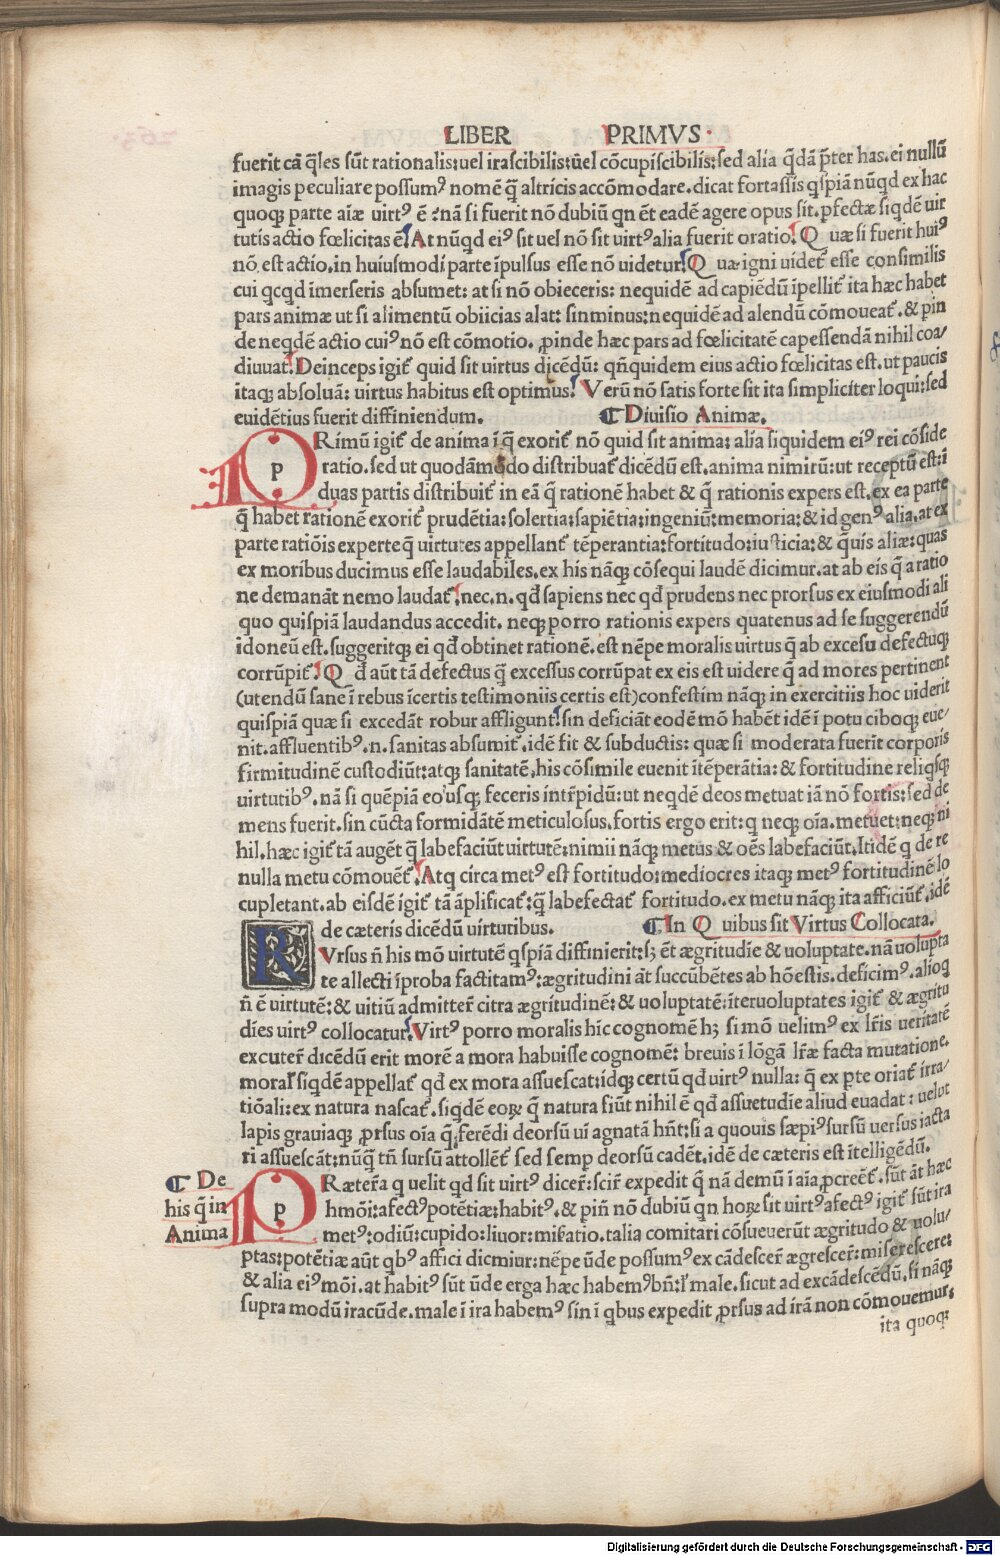 LIBER PRIMVS.
fuerit cā q̄les sūt rationalis: uel irascibilis: ūel cōcupiscibilis: sed alia q̄dā p̄ter has. ei nullū
imagis peculiare possumꝰ nomē q̄ altricis accōmodare. dicat fortassis qspiā nūqd ex hac
quoqꝫ parte aīæ uirtꝰ ē? nā si fuerit nō dubiū qn ēt eadē agere opus sit. pfectæ siqdē uir
tutis actio fœlicitas ē. At nūqd eiꝰ sit uel nō sit uirtꝰ alia fuerit oratio. Quæ si fuerit huiꝰ
nō est actio. in huiusmodi parte īpulsus esse nō uidetur. Quæ igni uidet̄ esse consimilis
cui qcqd īmerseris absumet: at si nō obieceris: nequidē ad capiēdū īpellit̄ ita hæc habet
pars animæ ut si alimentū obiicias alat: sin minus: nequidē ad alendū cōmoueat̄. & pin
de neqdē actio cuiꝰ nō est cōmotio. ꝓinde hæc pars ad fœlicitatē capessendā nihil coa/
diuuat̄. Deinceps igit̄ quid sit uirtus dicēdū: qn̄quidem eius actio fœlicitas est. ut paucis
itaqꝫ absoluā: uirtus habitus est optimus. Verū nō satis forte sit ita simpliciter loqui: sed
euidētius fuerit diffiniendum. ¶ Diuisio Animæ.
p RImū igit̄ de anima ī q̄ exorit̄ nō quid sit anima: alia siquidem eiꝰ rei cōside
ratio. sed ut quodāmodo distribuat̄ dicēdū est. anima nimirū: ut receptū est: ī
duas partis distribuit̄ in eā q̄ rationē habet & q̄ rationis expers est. ex ea parte
q̄ habet rationē exorit̄ prudētia: solertia: sapiētia: ingeniū: memoria: & id genꝰ alia. at ex
parte ratiōis experte q̄ uirtutes appellant̄ tēperantia: fortitudo: iusticia: & q̄uis aliæ: quas
ex moribus ducimus esse laudabiles. ex his nāqꝫ cōsequi laudē dicimur. at ab eis q̄ a ratio
ne demanāt nemo laudat̄. nec. n. qđ sapiens nec qđ prudens nec prorsus ex eiusmodi ali
quo quispiā laudandus accedit. neqꝫ porro rationis expers quatenus ad se suggerendū
idoneū est. suggeritqꝫ ei qđ obtinet rationē. est nēpe moralis uirtus q̄ ab excesu defectuqꝫ
corrūpit̄. Qđ aūt tā defectus q̄ excessus corrūpat ex eis est uidere q̄ ad mores pertinent
(utendū sane ī rebus īcertis testimoniis certis est) confestim nāqꝫ in exercitiis hoc uiderit
quispiā quæ si excedāt robur affligunt. sin deficiāt eodē mō habēt idē ī potu ciboqꝫ eue/
nit. affluentibꝰ. n. sanitas absumit̄. idē fit & subductis: quæ si moderata fuerit corporis
firmitudinē custodiūt: atqꝫ sanitatē. his cōsimile euenit ītēperātia: & fortitudine reliqsqꝫ
uirtutibꝰ. nā si quēpiā eousqꝫ feceris intr̄pidū: ut neqdē deos metuat iā nō fortis: sed de
mens fuerit. sin cūcta formidātē meticulosus. fortis ergo erit: q neqꝫ oīa. metuet: neqꝫ ni
hil. hæc igit̄ tā augēt q̄ labefaciūt uirtutē: nimii nāqꝫ metus & oēs labefaciūt. Itidē q de re
nulla metu cōmouēt̄. Atq circa metꝰ est fortitudo: mediocres itaqꝫ metꝰ fortitudinē lo
cupletant. ab eisdē igit̄ tā āplificat̄: q̄ labefectat̄ fortitudo. ex metu nāqꝫ ita afficiūt̄. idē
de cæteris dicēdū uirtutibus. ¶ In Quibus sit Virtus Collocata.
R Vrsus n̄ his mō uirtutē qspiā diffinierit: sꝫ ēt ægritudīe & uoluptate. nā uolupta
te allecti īproba factitamꝰ: ægritudini āt succūbētes ab hōestis. deficimꝰ. alioq
n̄ ē uirtutē: & uitiū admitter̄ citra ægritudinē: & uoluptatē: īter uoluptates igit̄ & ægritu
dīes uirtꝰ collocatur. Virtꝰ porro moralis hic cognomē hꝫ si mō uelimꝰ ex lr̄is ueritatē
excuter̄ dicēdū erit morē a mora habuisse cognomē: breuis ī lōgā lr̄æ facta mutatione.
moral̄ siqdē appellat̄ qđ ex mora assuescat: idqꝫ certū qđ uirtꝰ nulla: q̄ ex pte oriat̄ irra/
tiōali: ex natura nascat̄. siqdē eoꝝ q̄ natura fiūt nihil ē qđ assuetudīe aliud euadat: uelut
lapis grauiaqꝫ ꝓrsus oīa q̄ ferēdi deorsū uī agnatā hn̄t: si a quouis sæpiꝰ sursū uersus iacta
ri assuescāt: nūq̄ tn̄ sursū attollēt̄ sed semp deorsū cadēt. idē de cæteris est ītelligēdū.
¶ De
his q̄ in
Anima
p RÆter̄a q uelit qđ sit uirtꝰ dicer̄: scir̄ expedit q̄ nā demū ī aīa ꝓcreēt̄. sūt āt hæc
hmōi: afectꝰ potētiæ: habitꝰ. & pin̄ nō dubiū qn hoꝝ sit uirtꝰ afectꝰ igit̄ sūt ira
metꝰ: odiū: cupido: liuor: mīsatio. talia comitari cōsueuerūt ægritudo & uolu/
ptas: potētiæ aūt qbꝰ affici dicmiur: nēpe ūde possumꝰ ex cādescer̄ ægrescer̄: miserescere:
& alia eiꝰ mōi. at habitꝰ sūt ūde erga hæc habemꝰ bn̄: l̄ male. sicut ad excādescēdū. si nāqꝫ
supra modū iracūde. male ī ira habemꝰ sin ī qbus expedit ꝓrsus ad irā non cōmouemur:
ita quoqꝫ
Digitalisierung gefördert durch die Deutsche Forschungsgemeinschaft - DFG